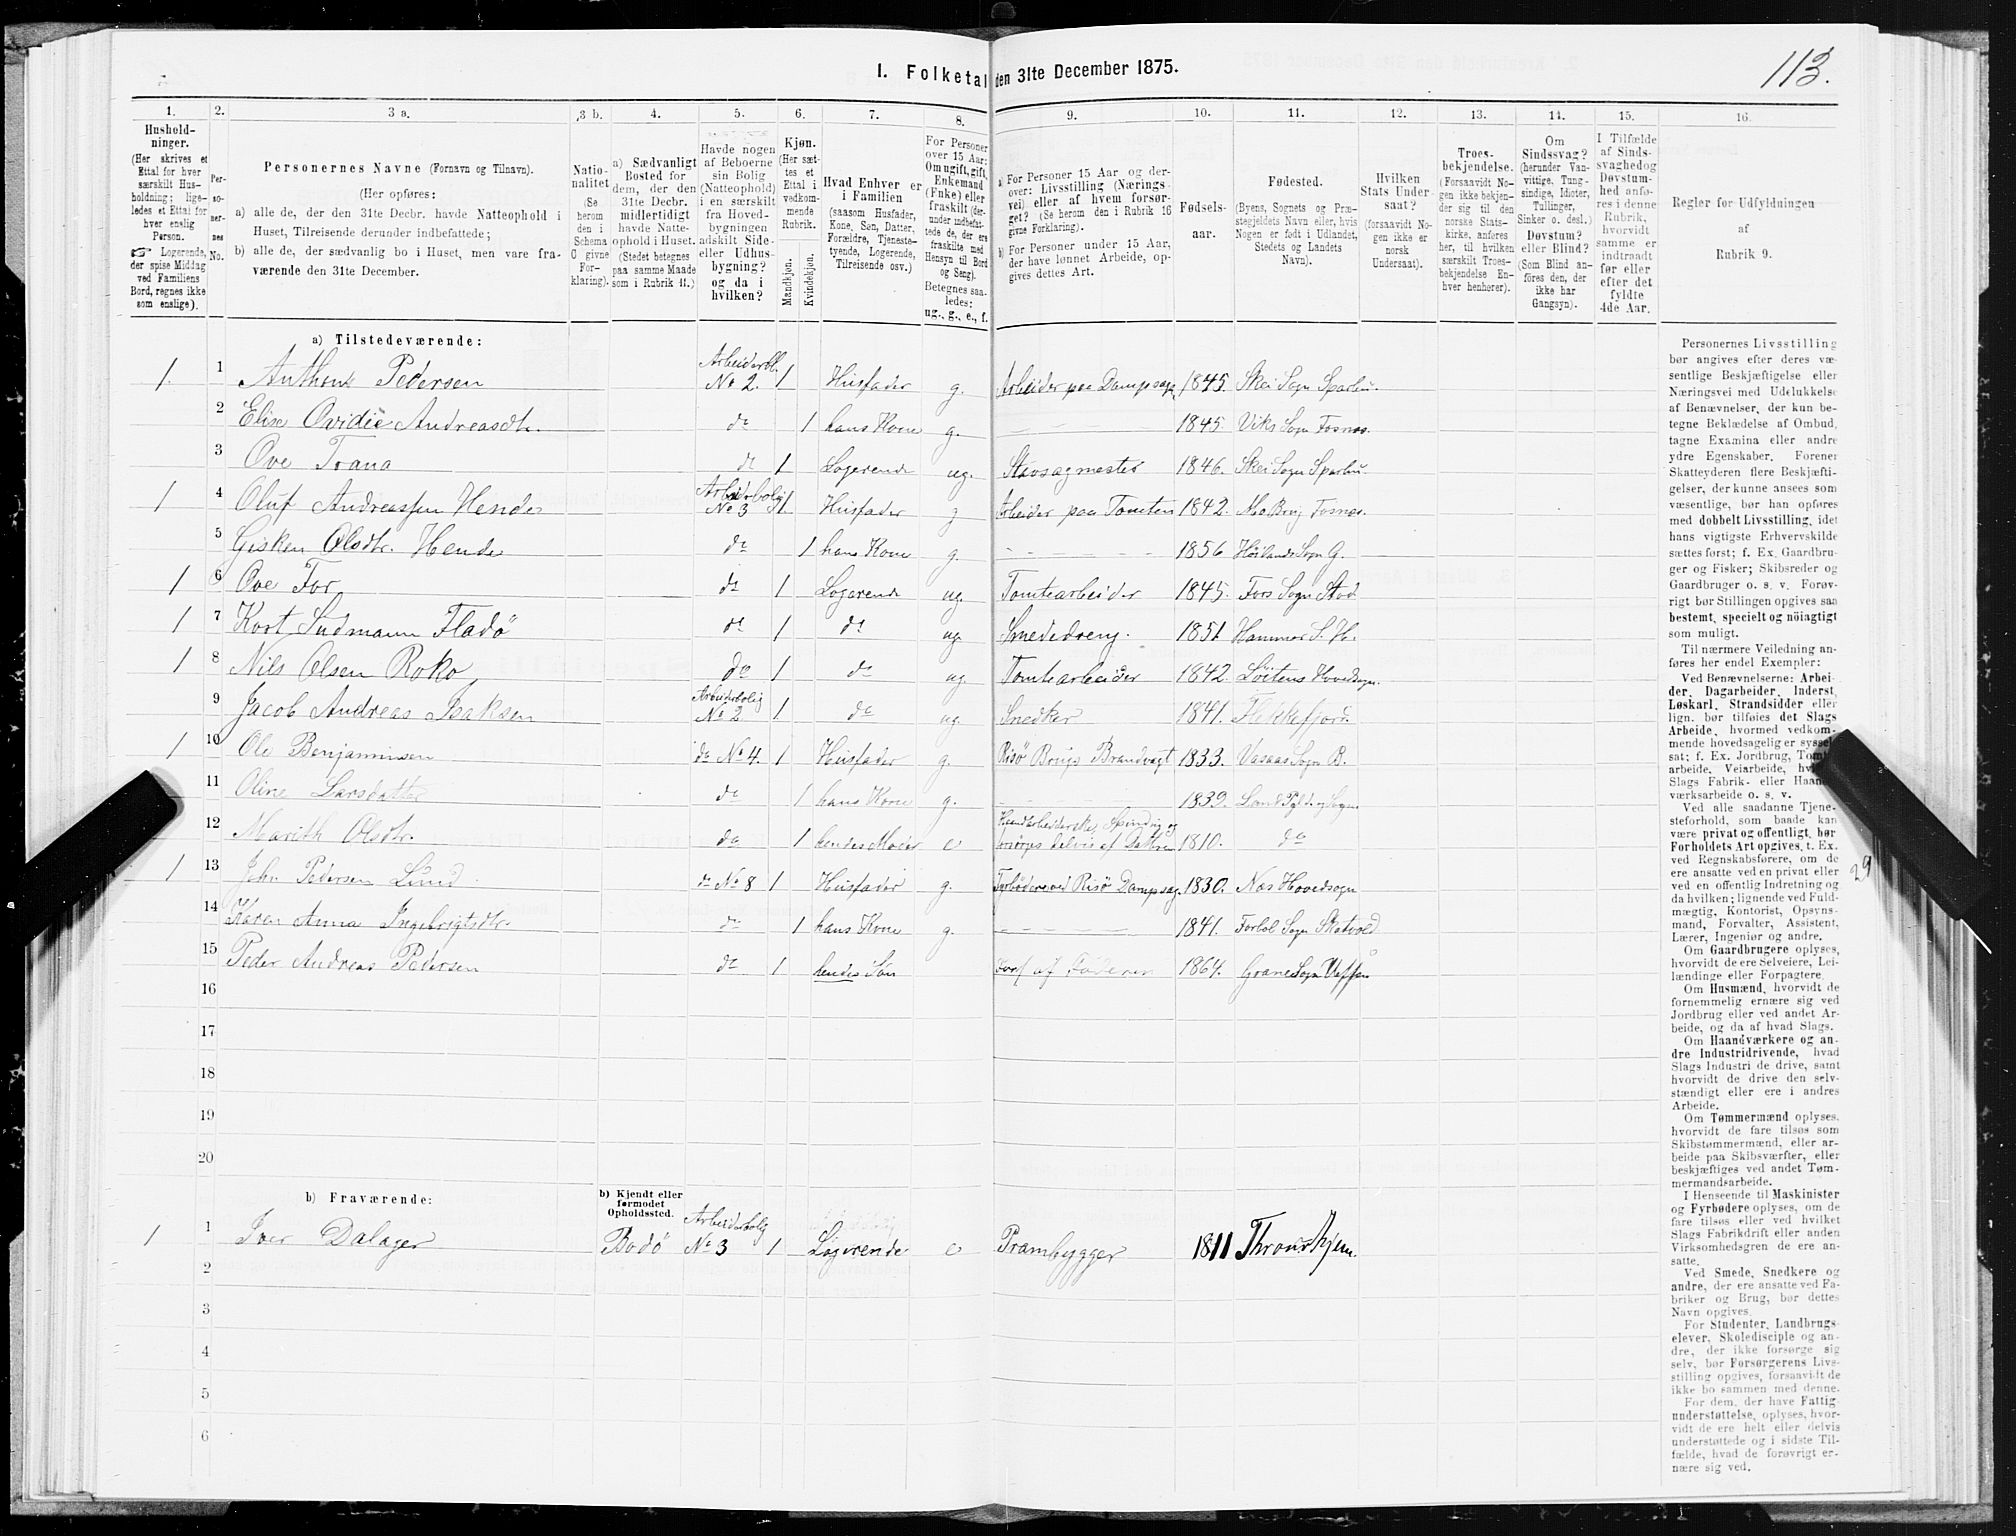 113.
1. Folketal den 31te December 1875.
1.
Hushold-
ninger.
(Her skrives et
Ettal for hver
særskilt Hus-
holdning; lige-
ledes et Ettal for
hver enslig
Person.
☞ Logerende,
der spise Middag
ved Familiens
Bord, regnes ikke
som enslige).
2.
Per-
so-
ner-
nes
No.
3 a.
Personernes Navne (Fornavn og Tilnavn).
(Her opføres:
a) alle de, der den 31te Decbr. havde Natteophold i
Huset, Tilreisende derunder indbefattede;
b) alle de, der sædvanlig bo i Huset, men vare fra-
værende den 31te December.
3 b.
Natio-
nalitet
(Se
herom
den i
Schema
C givne
For-
klaring).
4.
a) Sædvanligt
Bosted for
dem, der den
31te Decbr.
midlertidigt
havde Natte-
ophold i Huset.
(Stedet betegnes
paa samme Maade
som i Rubrik 11.)
5.
Havde nogen
af Beboerne
sin Bolig
(Natteophold)
i en særskilt
fra Hoved-
bygningen
adskilt Side-
eller Udhus-
bygning?
og da i
hvilken?
6.
Kjøn.
(Her sæt-
tes et
Ettal i
vedkom-
mende
Rubrik.
Mandkjøn.
Kvindekjøn.
7.
Hvad Enhver er
i Familien
(saasom Husfader,
Kone, Søn, Datter,
Forældre, Tjeneste-
tyende, Logerende,
Tilreisende osv.)
8.
For Personer
over 15 Aar:
Om ugift, gift,
Enkemand
(Enke) eller
fraskilt (der-
under indbefat-
tede de, der ere
fraskilte med
Hensyn til Bord
og Seng).
Betegnes saa-
ledes:
ug., g., e., f.
9.
a) For Personer 15 Aar og der-
over: Livsstilling (Nærings-
vei) eller af hvem forsør-
get? (Se herom den i Rubrik 16
givne Forklaring).
b) For Personer under 15 Aar,
der have lønnet Arbeide, op-
gives dettes Art.
10.
Fødsels-
aar.
11.
Fødested.
(Byens, Sognets og Præ-
stegjeldets Navn eller, hvis
Nogen er født i Udlandet,
Stedets og Landets
Navn).
12.
Hvilken
Stats Under-
saat?
(forsaavidt No-
gen ikke er
norsk
Undersaat).
13.
Troes-
bekjendelse.
(Forsaavidt No-
gen ikke bekjen-
der sig til den
norske Stats-
kirke, anføres
her, til hvilken
særskilt Troes-
bekjendelse En-
hver henhører).
14.
Om
Sindssvag?
(herunder Van-
vittige, Tung-
sindige, Idioter,
Tullinger,
Sinker o. desl.)
Døvstum?
eller Blind?
(Som Blind an-
føres den, der
ikke har
Gangsyn).
15.
I Tilfælde
af Sinds-
svaghed og
Døvstum-
hed anfø-
res i denne
Rubrik,
hvorvidt
samme er
indtraadt
før eller
efter det
fyldte
4de Aar.
16.
Regler for Udfyldningen
af
Rubrik 9.
a) Tilstedeværende:
1. 1 Anthons Pedersen Arbeiderbl. No 2. 1 Husfader g. Arbeider paa Dampsag 1845. Skei Sogn Sparbu.
2 Elise Ovidie Andreasdtr. do 1 hans Kone g. 1845. Viks Sogn Fosnæs.
3 Ove Trana do 1 Logerende ug. Stavsagmester 1846. Skei Sogn Sparbu.
1 4 Oluf Andreassen Hende Arbeiderbolig No 3 1 Husfader g Arbeider paa Tomten 1842. Fosnæs.
5 Gisken Olsdtr. Hende do 1 hans Kone g. 1856 Høilands Sogn G.
1 6 Ove For do 1 Logerende ug. Tomtearbeider 1845. Fors Sogn Stod
1 7 Kort Sudmann Fladø do 1 do ug. Smededreng. 1851. Hammer S. H.
1 8 Nils Olsen Roko do 1 do ug. Tomtearbeider 1842. Løitens Hovedsogn.
9 Jacob Andreas Isaksen Arbeiderbolig No 2 1 do ug Snedker 1841. Flekkefjord.
1 10 Ole Benjaminsen do No 4. 1 Husfader g. Risø Brugs Brandvagt 1833. Vasaas Sogn B.
11 Oline Larsdatter do 1 hans Kone g. 1839. Land Pgld. og Sogn
12 Marith Olsdtr. do 1 hendes Moder e Haandarbeiderske, Spinding og forsørges delvis af Dattren 1810. do
1 13 John Pedersen Lund do No 8 1 Husfader g. Fyrbøder ved Risø Dampsag. 1830. Næs Hovedsogn
14 Karen Anna Ingebrigtsdtr. do 1 hans Kone g. 1841. Forbol Sogn Skatvold
15 Peder Andreas Pedersen do 1 hendes Søn Fors. af Faderen 1864. Grane Sogn Vefsen
16
17
18
19
20
b) Fraværende:
b) Kjendt eller
formodet
Opholdssted.
1 1 Iver Dalager Bodø Arbeiderbolig No 3 1 Logerende e Prambygger 1811 Throndhjem.
2
3
4
5
6
Personernes Livsstilling
bør angives efter deres væ-
sentlige Beskjæftigelse eller
Næringsvei med Udelukkelse
af Benævnelser, der kun be-
tegne Beklædelse af Ombud,
tagne Examina eller andre
ydre Egenskaber. Forener
Skatteyderen flere Beskjæfti-
gelser, der kunne ansees som
væsentlige, bør han opføres
med dobbelt Livsstilling, idet
hans vigtigste Erhvervskilde
sættes først; f. Ex. Gaardbru-
ger og Fisker; Skibsreder og
Gaardbruger o. s. v. Forøv-
rigt bør Stillingen opgives saa
bestemt, specielt og nøiagtigt
som muligt.
Til nærmere Veiledning an-
føres her endel Exempler:
Ved Benævnelserne: Arbei-
der, Dagarbeider, Inderst,
Løskarl, Strandsidder eller
lign. bør tilføies det Slags
Arbeide, hvormed vedkom-
mende hovedsagelig er syssel-
sat; f. Ex. Jordbrug, Tomte-
arbeide, Veiarbeide, hvad
Slags Fabrik- eller Haand-
værksarbeide o. s. v.
Ved alle saadanne Tjene-
steforhold, som baade kan
være privat og offentligt, bør
Forholdets Art opgives, t. Ex.
ved Regnskabsførere, om de
ere ansatte ved en privat eller
ved en offentlig Indretning og
da hvilken; lignende ved Fuld-
mægtig, Kontorist, Opsyns-
mand, Forvalter, Assistent,
Lærer, Ingeniør og andre.
Om Gaardbrugere oplyses,
hvorvidt de ere Selveiere, Lei-
lændinge eller Forpagtere.
Om Husmænd, hvorvidt de
fornemmelig ernære sig ved
Jordbrug eller ved andet Ar-
beide, og da af hvad Slags.
Om Haandværkere og an-
dre Industridrivende, hvad
Slags Industri de drive, samt
hvorvidt de drive den selv-
stændigt eller ere i andres
Arbeide.
Om Tømmermænd oplyses,
hvorvidt de fare tilsøs som
Skibstømmermænd, eller ar-
beide paa Skibsværfter, eller
beskjæftiges ved andet Tøm-
mermandsarbeide.
I Henseende til Maskinister
og Fyrbødere oplyses, om de
fare tilsøs eller ved hvilket
Slags Fabrikdrift eller anden
Virksomhedsgren de ere an-
satte.
Ved Smede, Snedkere og
andre, der ere ansatte ved Fa-
briker og Brug, bør dettes
Navn opgives.
For Studenter, Landbrugs-
elever, Skoledisciple og an-
dre, der ikke forsørge sig
selv, bør Forsørgerens Livs-
stilling opgives, forsaavidt de
ikke bo sammen med denne.
For dem, der have Fattig-
understøttelse, oplyses, hvor-
vidt de ere helt eller delvis
understøttede og i sidste Til-
fælde, hvad de forøvrigt er-
nære sig ved.
29